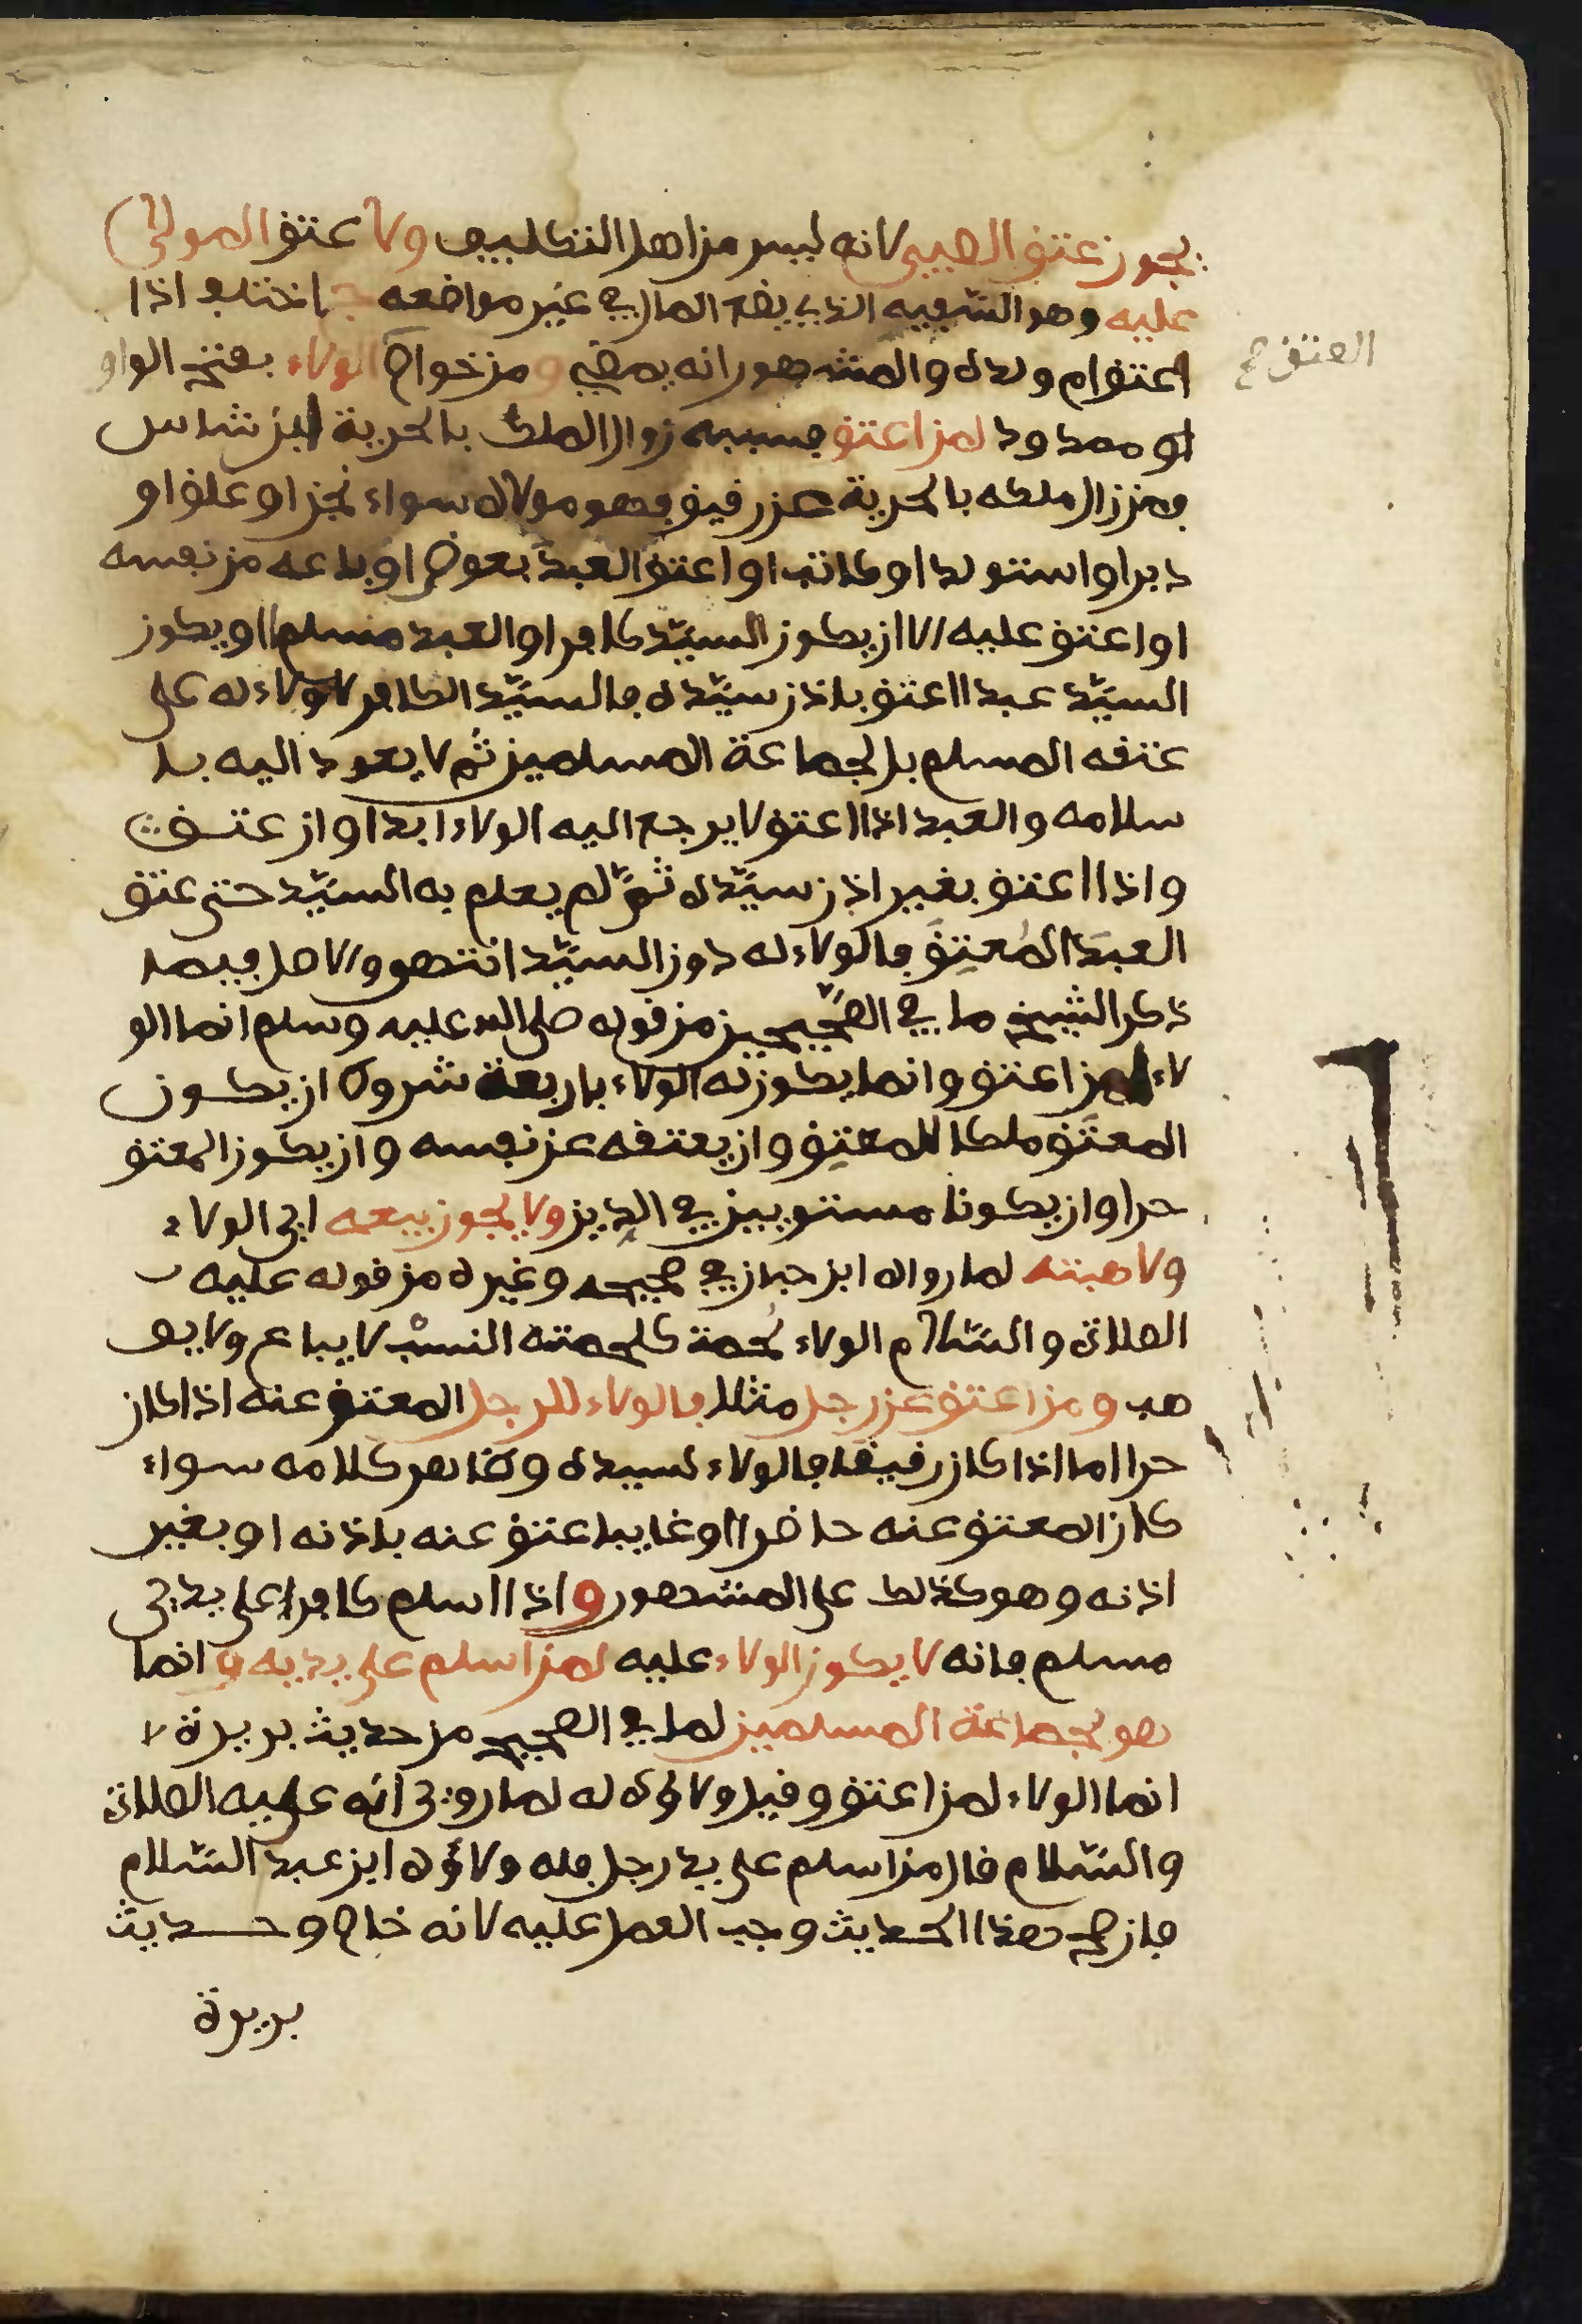 يجوز عتق الصبي لانه ليس من اهل التكليف ولا عتق المولى
عليه وهو السفيه الذي يضع المال في غير مواضعه واختلف اذا
اعتق ام ولده والمشهور انه يمضي ومن خواص الولاء بفتح الواو
ممدود لمن اعتق فسببه زوال الملك بالحرية ابن شاس
فمن زال ملكه بالحرية عن رقيق فهو مولاه سواء نجز او علق او
دبر او استولد او كاتب او اعتق العبد بعوض او باعه من نفسه
او اعتق عليه الا ان يكون السيد كافرا والعبد مسلما او يكون
السيد عبدا اعتق باذن سيده فالسيد الكافر لا ولاء له على
عتقه المسلم بل لجماعة المسلمين ثم لا يعود اليه با
سلامه والعبد اذا اعتق لا يرجع اليه الولاء ابدا وان عتق
واذا اعتق بغير اذن سيده ثم لم يعلم به السيد حتى عتق
العبد المعتق فالولاء له دون السيد انتهى والاصل فيما
ذكر الشيخ ما في الصحيحين من قوله صلى الله عليه وسلم انما الو
لاء لمن اعتق وانما يكون له الولاء باربعة شروط ان يكون
المعتق ملكا للمعتق وان يعتقه عن نفسه وان يكون المعتق
حرا وان يكونا مستويين في الدين ولا يجوز بيعه اي الولاء
ولا هبته لما رواه ابن حبان في صحيحه وغيره من قوله عليه
الصلاة والسلام الولاء لحمة كلحمة النسب لا يباع ولا يو
هب ومن اعتق عن رجل مثلا فالولاء للرجل المعتق عنه اذا كان
حرا اما اذا كان رقيقا فالولاء لسيده وظاهر كلامه سواء
كان المعتق عنه حاضرا او غايبا عتق عنه باذنه او بغير
اذنه وهو كذلك على المشهور واذا اسلم كافر على يدي
مسلم فانه لا يكون الولاء عليه لمن اسلم على يديه وانما
هو لجماعة المسلمين لما في الصحيح من حديث بريرة
انما الولاء لمن اعتق وقيل ولاؤه له لما روي انه عليه الصلاة
والسلام قال من اسلم على يد رجل فله ولاؤه ابن عبد السلام
فان صح هذا الحديث وجب العمل عليه لانه خاص وحديث
بريرة
العتق